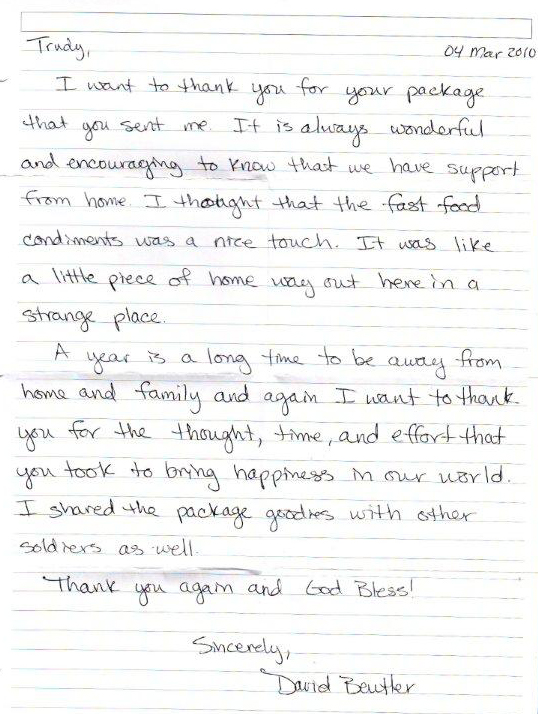 Trudy,
04 Mar 2010
I want to thank you for your package
that you sent me. It is always wonderful
and encouraging to know that we have support
from home. I thought that the fast food
condiments was a nice touch. It was like
a little piece of home way out here in a
strange place.
A year is a long time to be away from
home and family and again I want to thank
you for the thought, time, and effort that
you took to bring happiness in our world.
I shared the package goodies with other
soldiers as well.
Thank you again and God Bless!
Sincerely,
David Beutler